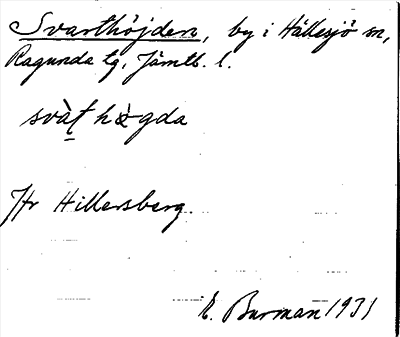 Svarthöjden, by i Hällesjö sn,
Ragunda tg, Jämtl. l.
svàt hògda
Jfr Hillersberg.
E. Burman 1931